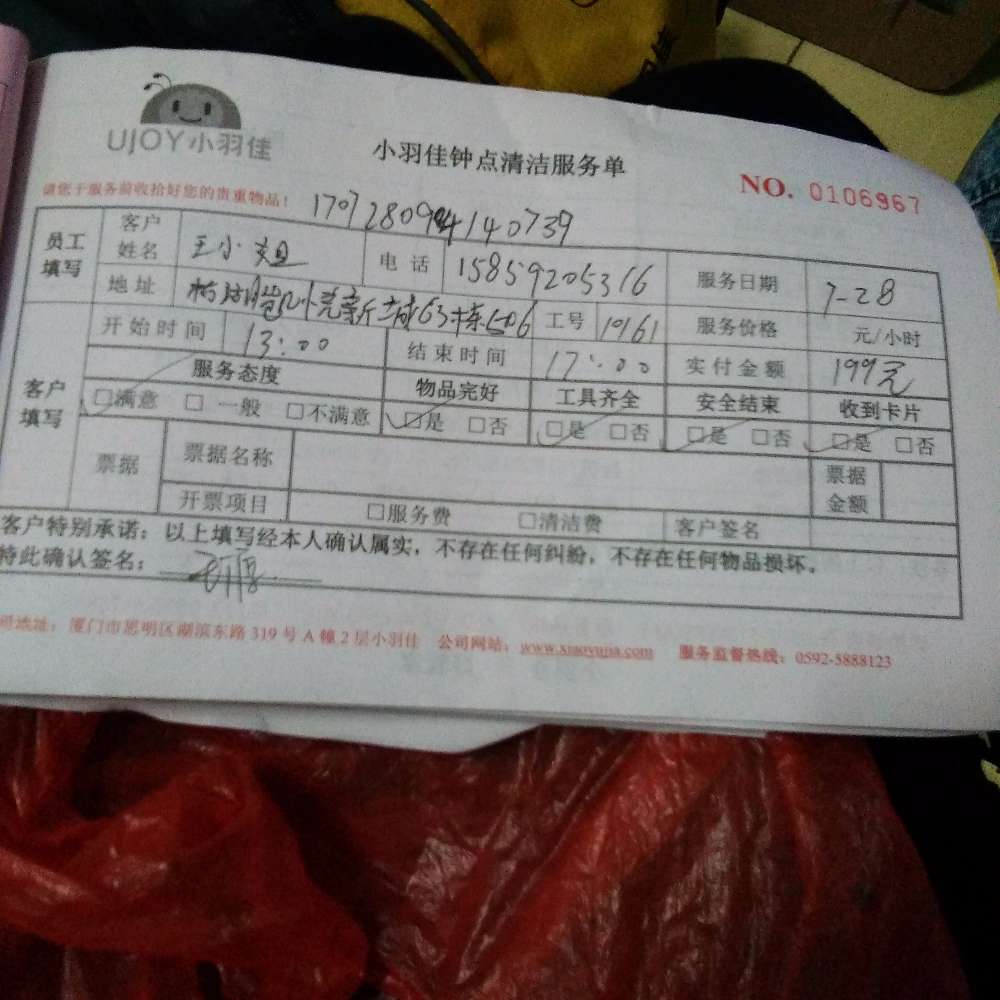 UJOY小羽佳
小羽佳钟点清洁服务单
NO. 0106967
请您于服务前收拾好您的贵重物品！
员工填写 客户姓名 王小姐 电话 15859205316 服务日期 7-28
地址 新城63栋506 工号 10161 服务价格 元/小时
开始时间 13:00 结束时间 17:00 实付金额 199元
客户填写 服务态度 物品完好 工具齐全 安全结束 收到卡片
□满意 □一般 □不满意 □是 □否 □是 □否 □是 □否 □是 □否
票据 票据名称 票据金额
开票项目 □服务费 □清洁费 客户签名
客户特别承诺：以上填写经本人确认属实，不存在任何纠纷，不存在任何物品损坏。
特此确认签名：
司地址：厦门市思明区湖滨东路319号A幢2层小羽佳 公司网站：www.xiaoyujia.com 服务监督热线：0592-5888123